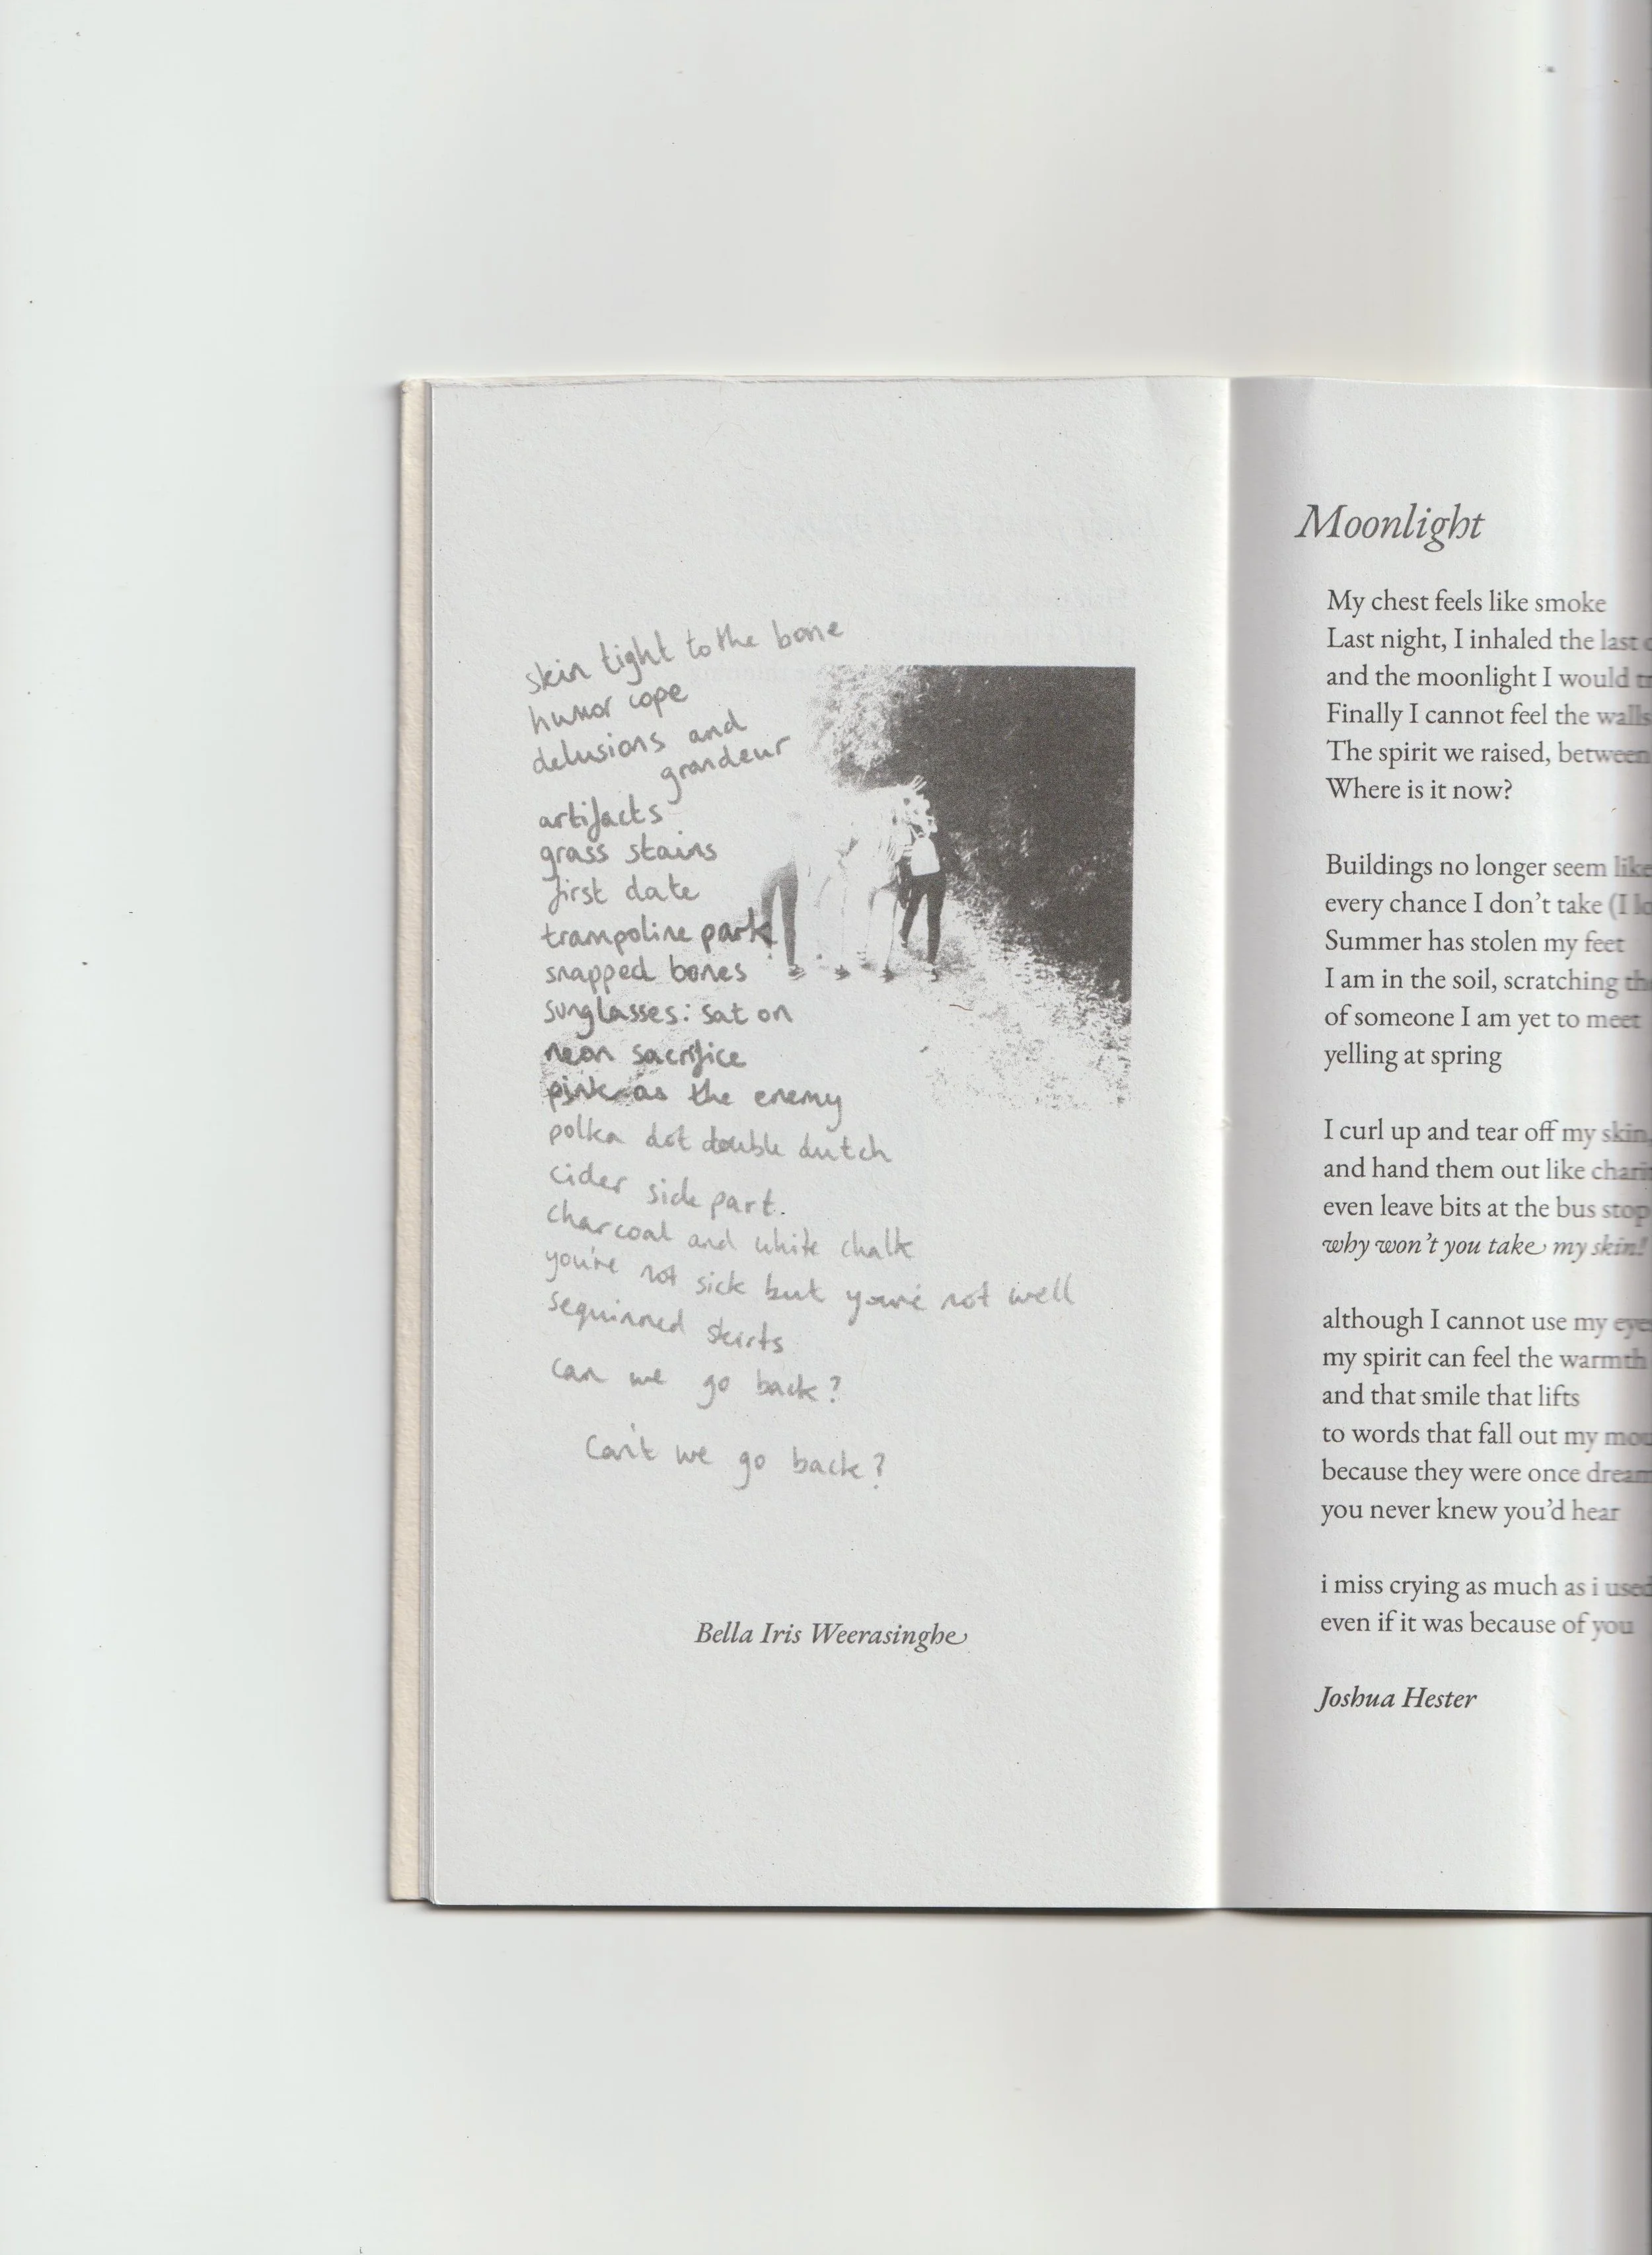 skin tight to the bone
humor cope
delusions and
grandeur
artifacts
grass stains
first date
trampoline park
snapped bones
sunglasses: sat on
neon sacrifice
pink as the enemy
polka dot double dutch
cider side part.
charcoal and white chalk
you're not sick but you're not well
sequinned skirts
can we go back?
Can't we go back?
Bella Iris Weerasinghe
Moonlight
My chest feels like smoke
Last night, I inhaled the last
and the moonlight I would
Finally I cannot feel the walls
The spirit we raised, between
Where is it now?
Buildings no longer seem like
every chance I don't take (I
Summer has stolen my feet
I am in the soil, scratching
of someone I am yet to meet
yelling at spring
I curl up and tear off my skin,
and hand them out like
even leave bits at the bus stop
why won't you take my skin!
although I cannot use my
my spirit can feel the warmth
and that smile that lifts
to words that fall out my
because they were once
you never knew you'd hear
i miss crying as much as i used
even if it was because of you
Joshua Hester